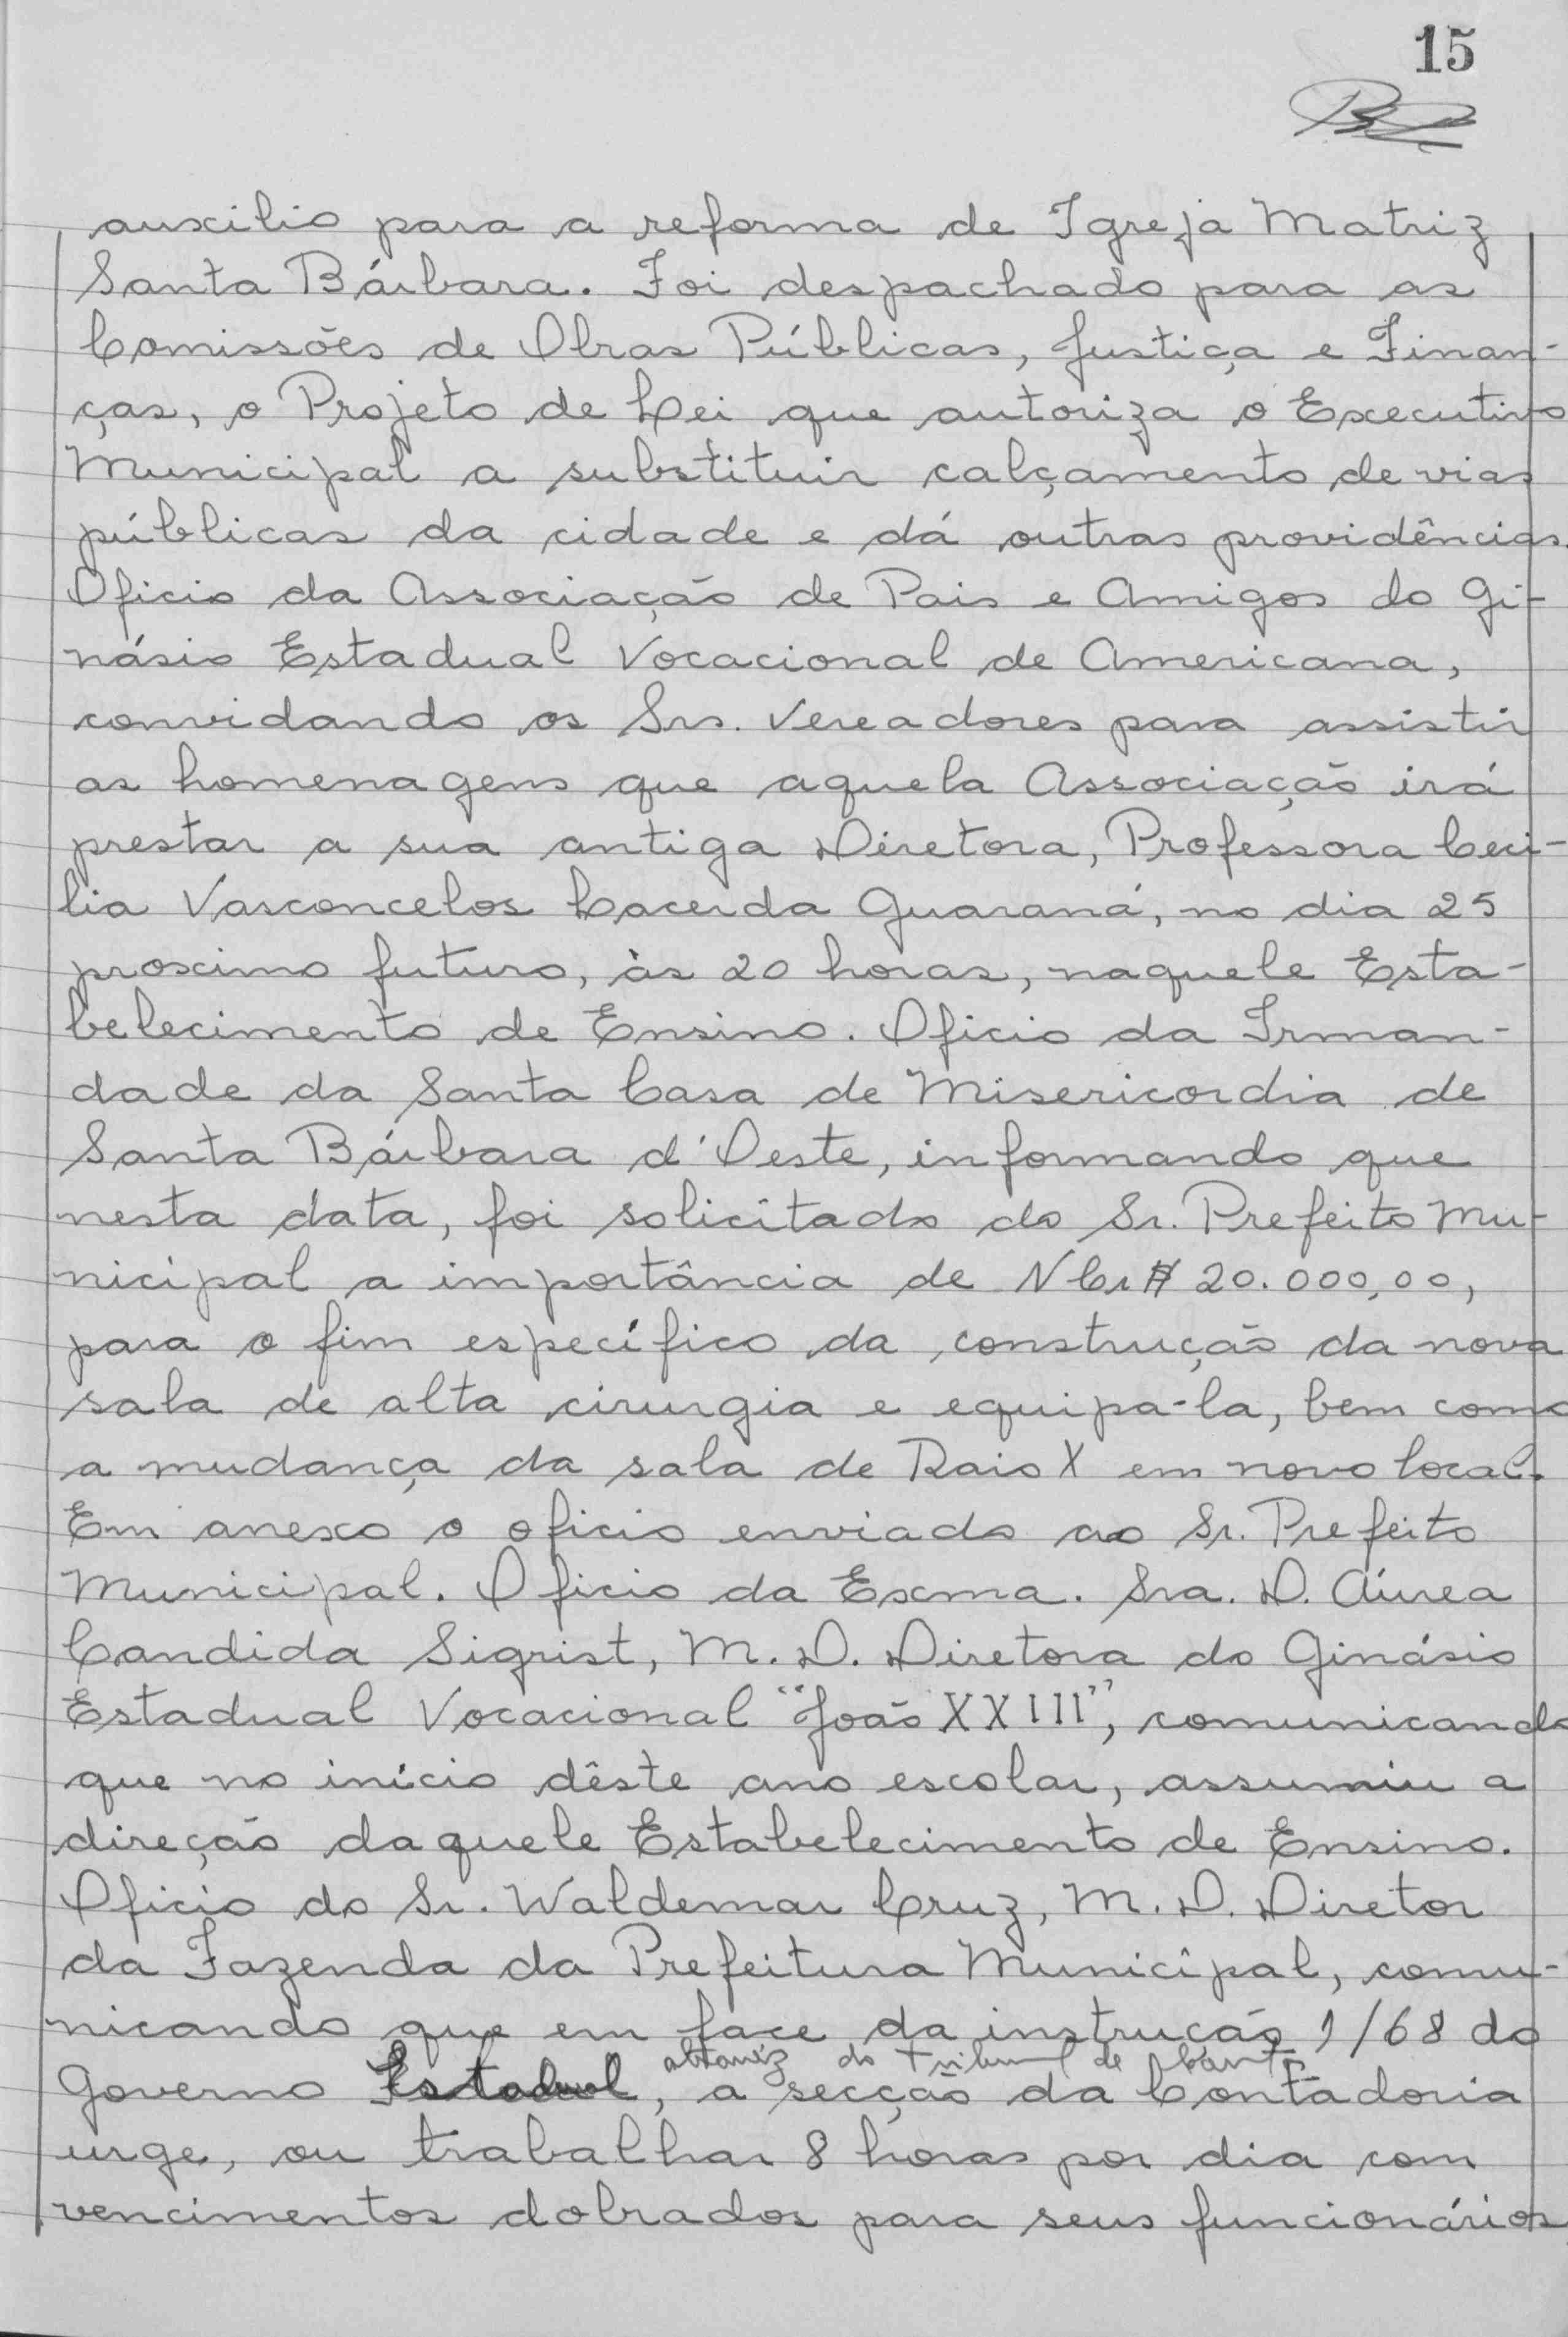 15
auxilio para a reforma de Igreja Matriz
Santa Bárbara. Foi despachado para as
Comissões de Obras Públicas, Justiça e Finan-
ças, o Projeto de Lei que autoriza o Executivo
Municipal a substituir calçamento de vias
públicas da cidade e dá outras providências.
Oficio da Associação de Pais e Amigos do Gi-
násio Estadual Vocacional de Americana,
convidando os Srs. Vereadores para assistir
as homenagens que aquela Associação irá
prestar a sua antiga Diretora, Professora Ceci-
lia Vasconcelos Lacerda Guaraná, no dia 25
proximo futuro, às 20 horas, naquele Esta-
belecimento de Ensino. Oficio da Irman-
dade da Santa Casa de Misericordia de
Santa Bárbara d'Oeste, informando que
nesta data, foi solicitado do Sr. Prefeito Mu-
nicipal a importância de NCr$ 20.000,00,
para o fim específico da construção da nova
sala de alta cirurgia e equipa-la, bem como
a mudança da sala de Raio X em novo local.
Em anexo o oficio enviado ao Sr. Prefeito
Municipal. Oficio da Exma. Sra. D. Áurea
Candida Sigrist, M. D. Diretora do Ginásio
Estadual Vocacional "João XXIII", comunicando
que no início dêste ano escolar, assumiu a
direção daquele Estabelecimento de Ensino.
Oficio do Sr. Waldemar Cruz, M. D. Diretor
da Fazenda da Prefeitura Municipal, comu-
nicando que em face da instrução 1/68 do
através do Tribunal de Contas
Governo Estadual, a secção da Contadoria
urge, ou trabalhar 8 horas por dia com
vencimentos dobrados para seus funcionários